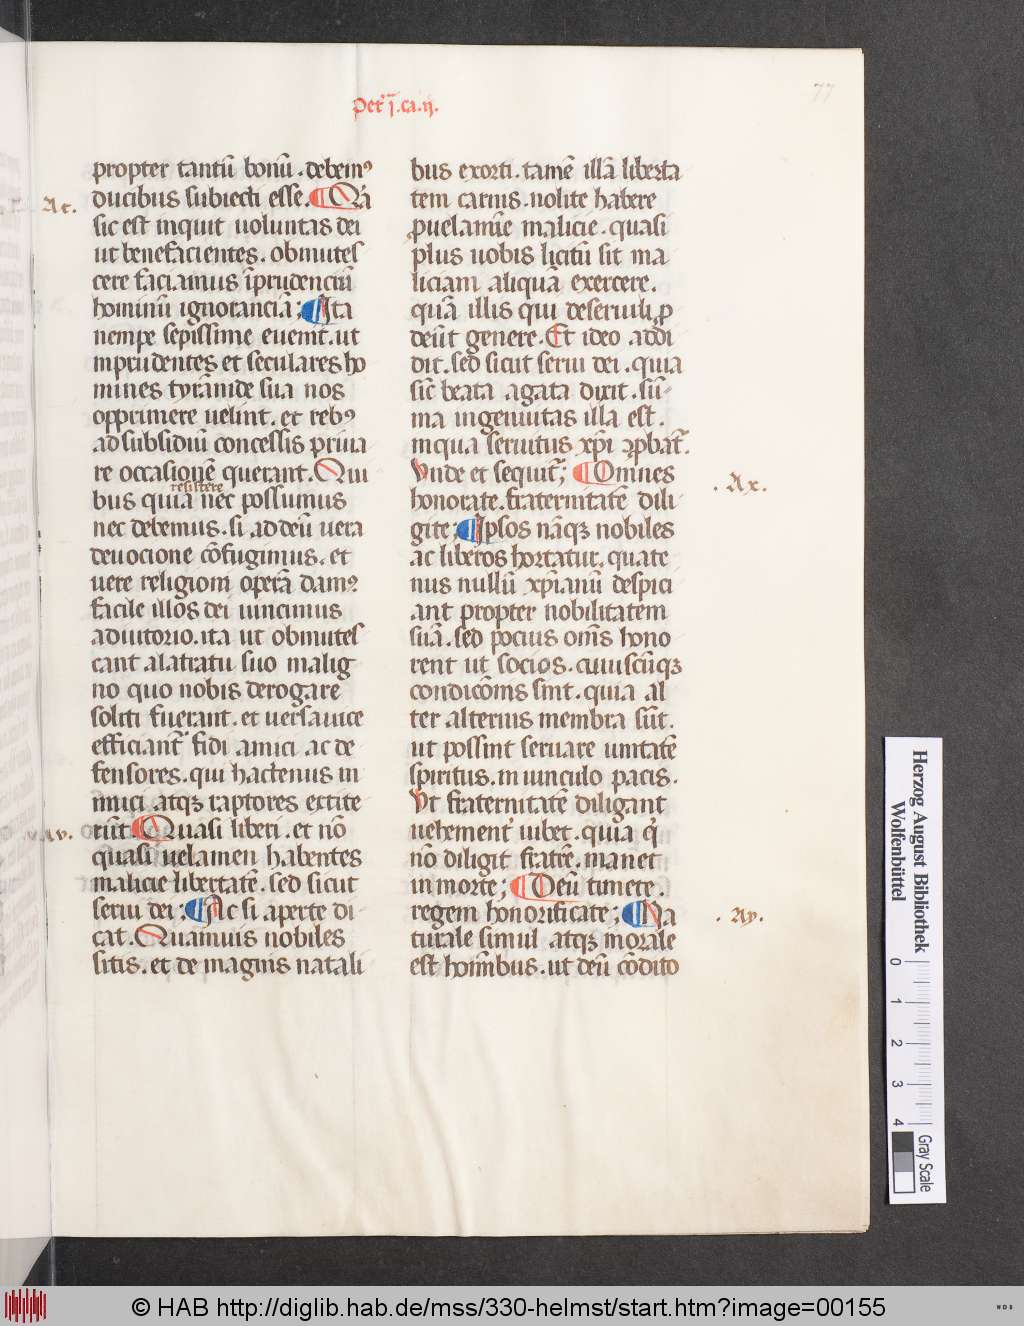 77
Pet᷒ j. ca. ij.
propter tantū bonū . debem᷒
At. ducibus subiecti esse . Quā
sic est inquit uoluntas dei
ut benefacientes . obmutes
cere faciamus īprudenciū
hominū ignoranciā ; Ita
nempe sepissime euenit . ut
inprudentes et seculares ho
mines tyrānide sua nos
opprimere uelint . et reb᷒
ad subsidiū concessis priua
re occasionē querant . Qui
resistere
bus quia nec possumus
nec debemus . si ad deū uera
deuocione cōfugimus . et
uere religioni operā dam᷒
facile illos dei uincimus
adiutorio . ita ut obmutes
cant a latratu suo malig
no quo nobis derogare
soliti fuerant . et uersa uice
efficiant᷑ fidi amici ac de
fensores . qui hactenus in
imici atqꝫ raptores extite
Av. rūt . Quasi liberi . et nō
quasi uelamen habentes
malicie libertatē . sed sicut
serui dei ; Ac si aperte di
cat . Quamuis nobiles
sitis . et de magnis natali
bus exorti . tamē illā liberta
tem carnis . nolite habere
ꝑuelamīe malicie . quasi
plus uobis licitū sit ma
liciam aliquā exercere .
quā illis qui de seruili ꝓ
deūt genere . Et ideo addi
dit . sed sicut serui dei . quia
sic̄ beata agata dixit . sū
ma ingenuitas illa est .
in qua seruitus xp̄i ꝯprobat᷑ .
Vnde et sequit᷑ ; Omnes . Ax .
honorate . fraternitatē dili
gite ; Ipsos nāqꝫ nobiles
ac liberos hortatur . quate
nus nullū xp̄ianū despici
ant propter nobilitatem
suā . sed pocius om̄s hono
rent ut socios . cuiuscūqꝫ
condicōnis sint . quia al
ter alterius membra sūt .
ut possint seruare unitatē
spiritus . in uinculo pacis .
Vt fraternitatē diligant
uehement᷑ iubet . quia q̇
nō diligit fratrē . manet
in morte ; Deū timete .
regem honorificate ; Na . Ay .
turale simul atqꝫ morale
est hoīnibus . ut deū cōdito
Herzog August Bibliothek
Wolfenbüttel
0 1 2 3 4
Gray Scale
© HAB http://diglib.hab.de/mss/330-helmst/start.htm?image=00155